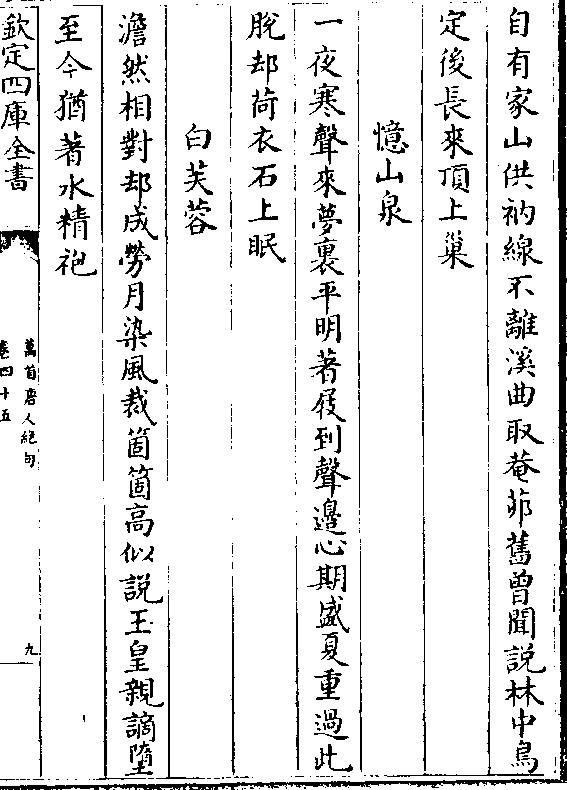 自有家山供衲線不離溪曲取菴茆舊曾聞説林中鳥
定後長來頂上巢
憶山泉
一夜寒聲來夢裏平明著屐到聲邊心期盛夏重過此
脫却荷衣石上眠
白芙蓉
澹然相對却成勞月染風裁箇箇高似説玉皇親謫墮
至今猶著水精袍
欽定四庫全書
萬首唐人絶句
卷四十五
九